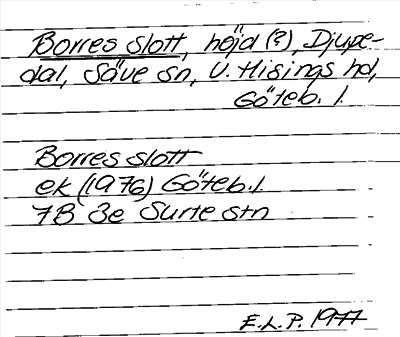 Borres slott, höjd (?), Djupe-
dal, Säve sn, V. Hisings hd,
Göteb. l.
Borres slott
ek (1976) Göteb. l
7B 3e Surte stn
E.L.P. 1977